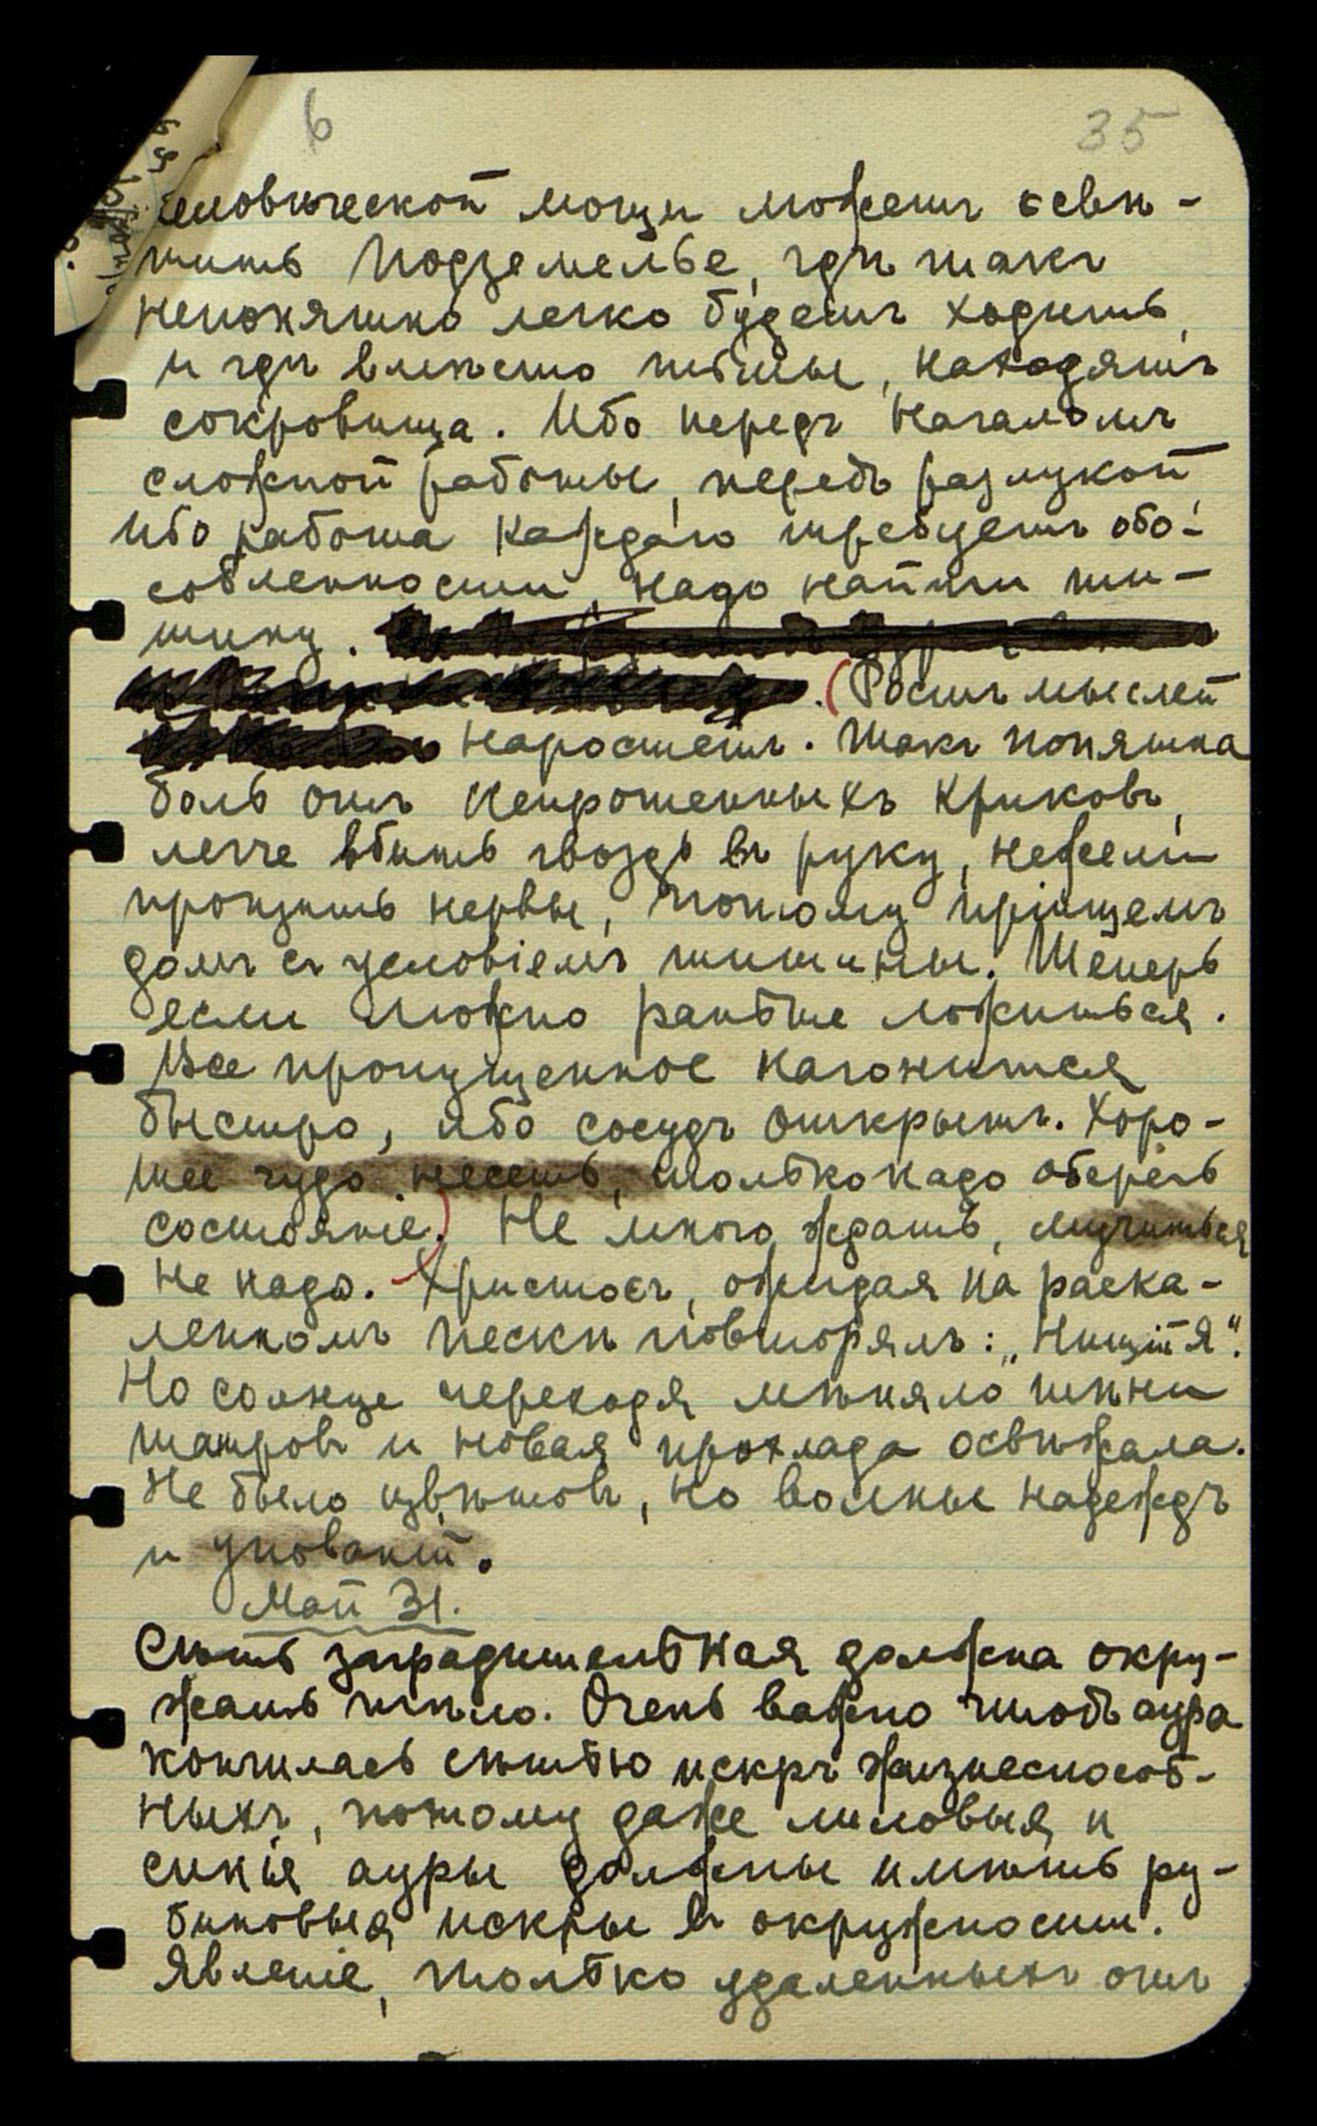 6 35
человѣческой мощи можетъ освѣ-
тить подземелье, гдѣ такъ
непонятно легко будетъ ходить,
и гдѣ вмѣсто тьмы, находятъ
сокровища. Ибо передъ началомъ
сложной работы, передъ разлукой,
ибо работа каждаго требуетъ обо-
собленности, надо найти ти-
шину.
. (Ростъ мыслей
наростетъ. Такъ понятна
боль отъ непрошенныхъ криковъ,
легче вбить гвоздь въ руку, нежели
пронзить нервы, потому прiищемъ
домъ съ условiемъ тишины. Теперь
если можно раньше ложиться.
Все пропущенное нагонится
быстро, ибо сосудъ открытъ. Хоро-
шее чудо несетъ, только надо оберечь
состоянiе.) Не много ждать, мучиться
не надо. Христосъ, ожидая на раска-
ленномъ пескѣ повторялъ: „Нищiй Я“.
Но солнце переходя мѣняло тѣни
шатровъ и новая прохлада освѣжала.
Не было цвѣтовъ, но волны надеждъ
и упованiй.
Май 31.
Сѣть заградительная должна окру-
жать тѣло. Очень важно чтобъ аура
кончилась сѣтью искръ жизнеспособ-
ныхъ, потому даже лиловыя и
синiя ауры должны имѣть ру-
биновыя искры въ окружности.
Явленiе, только удаленныхъ отъ